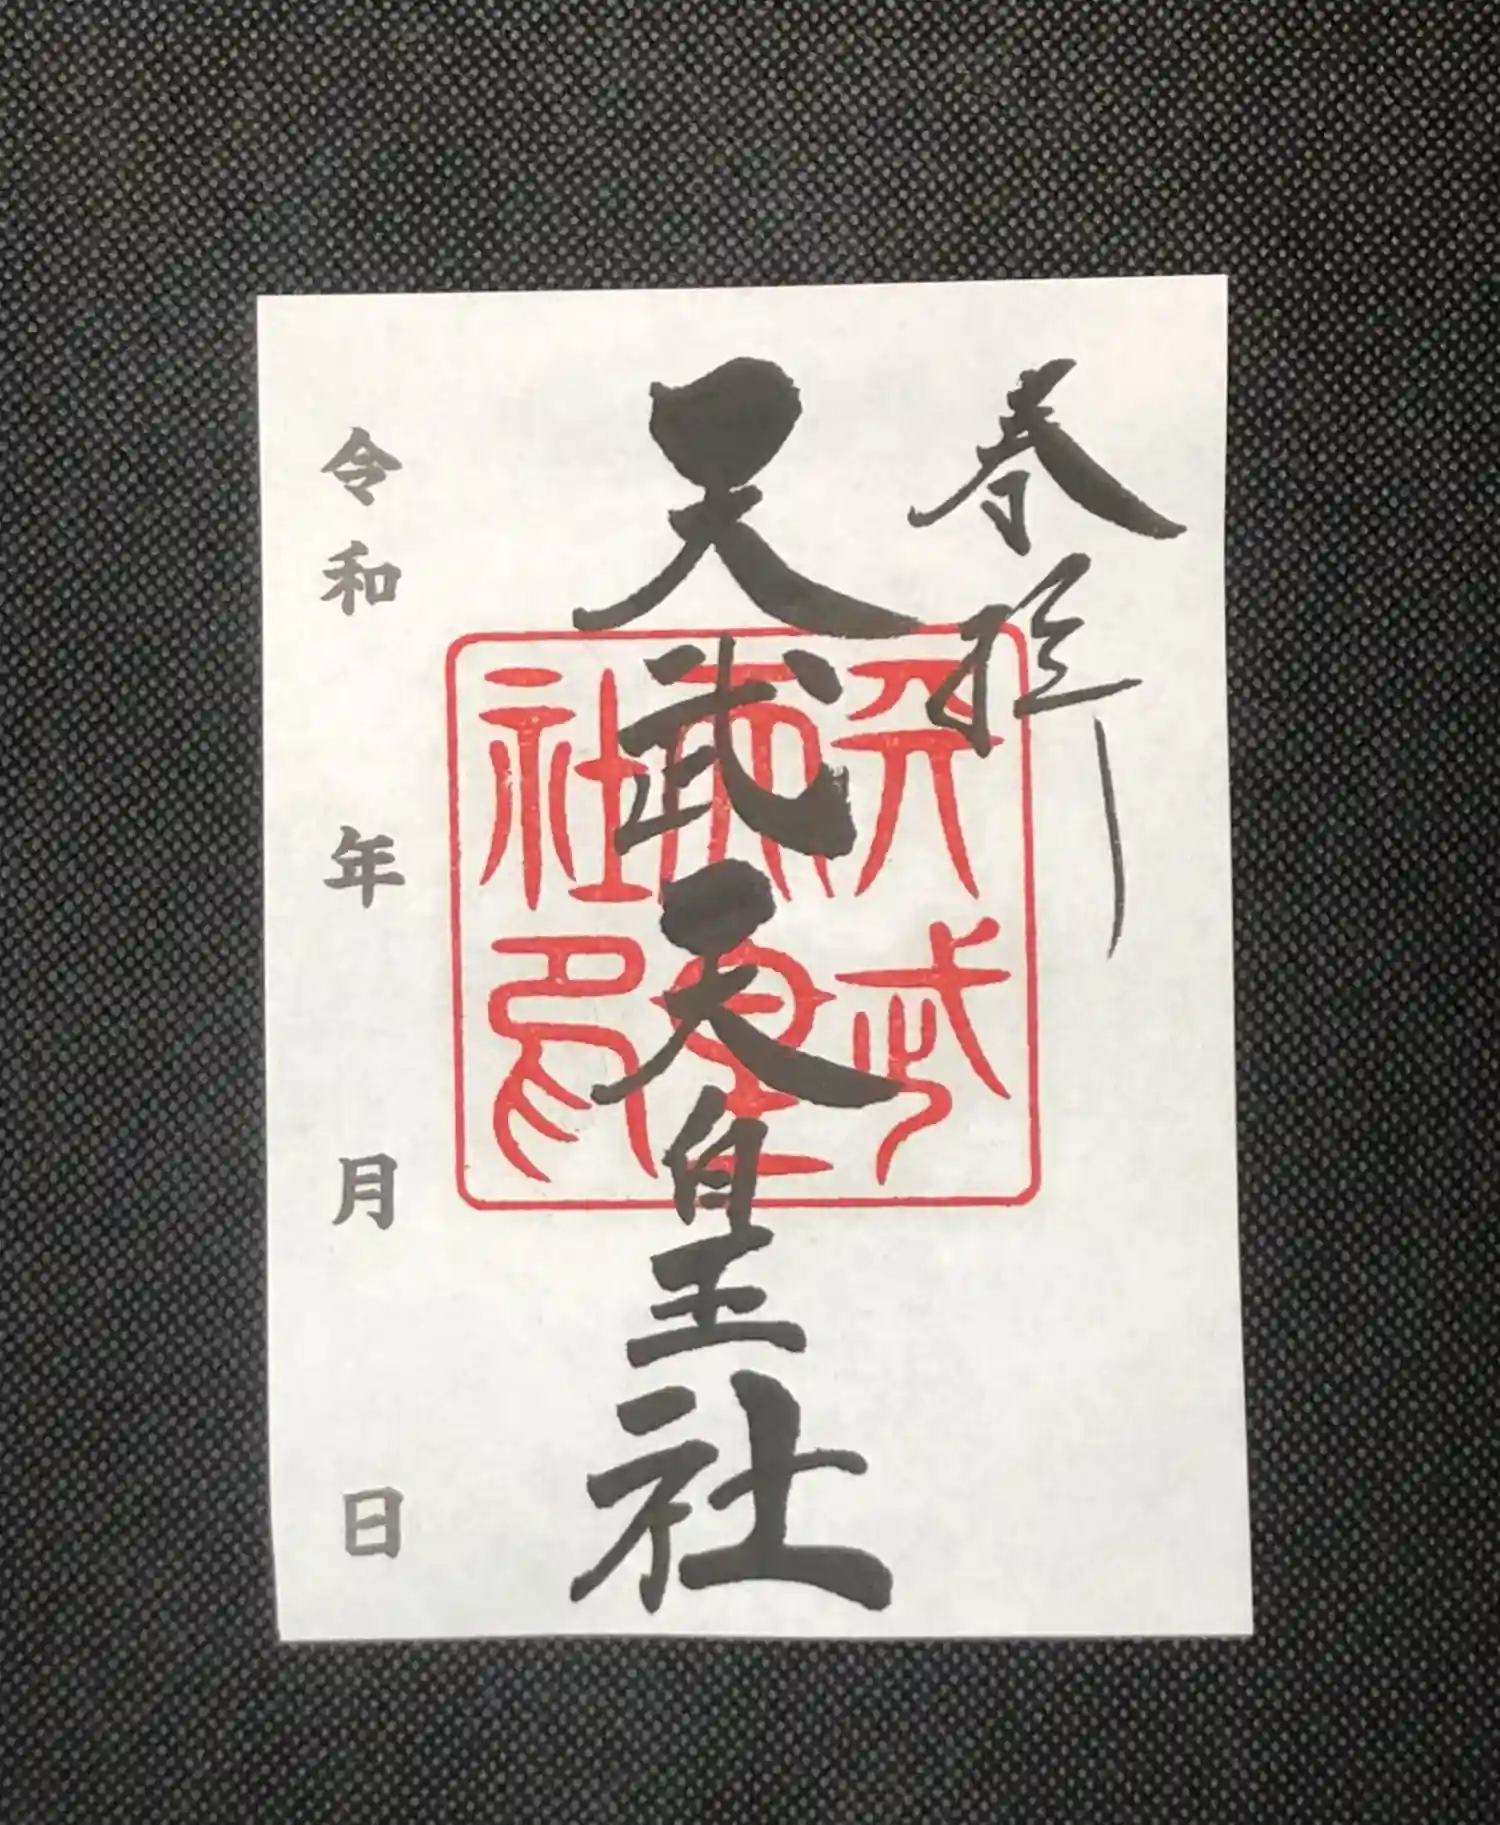 奉拝
天武天皇社
天武
天皇
社印
令和 年 月 日